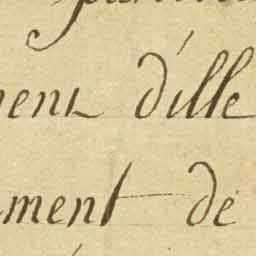 ment d'ille
ment de